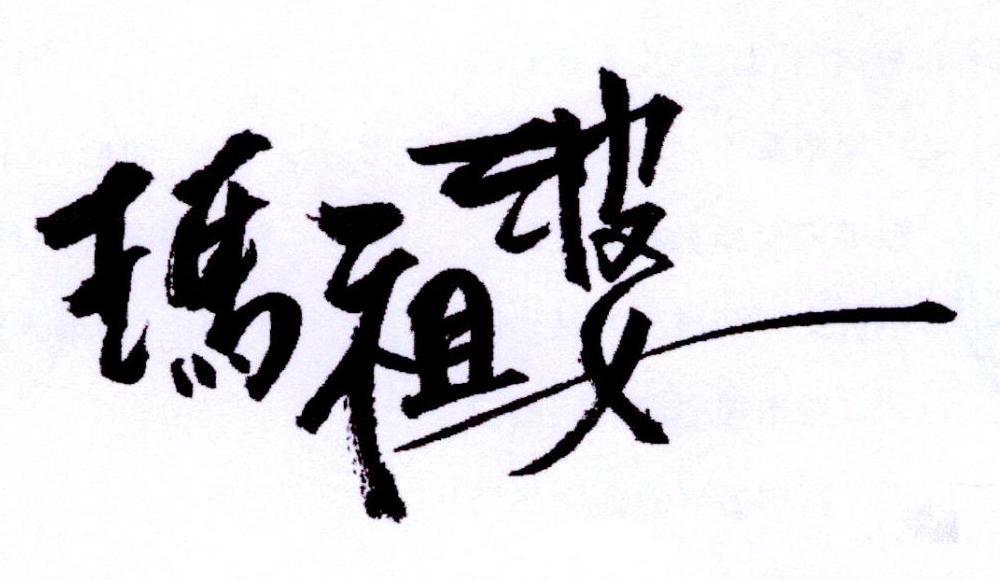 瑪祖婆